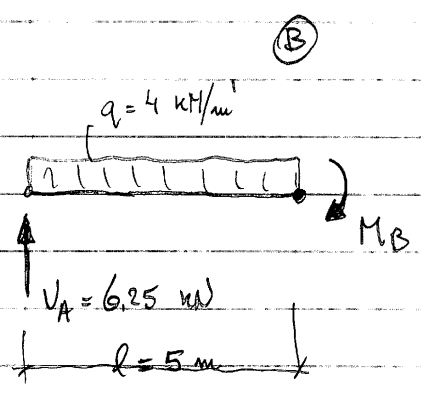 B
q = 4 kN/m'
M_B
V_A = 6,25 kN
l = 5 m